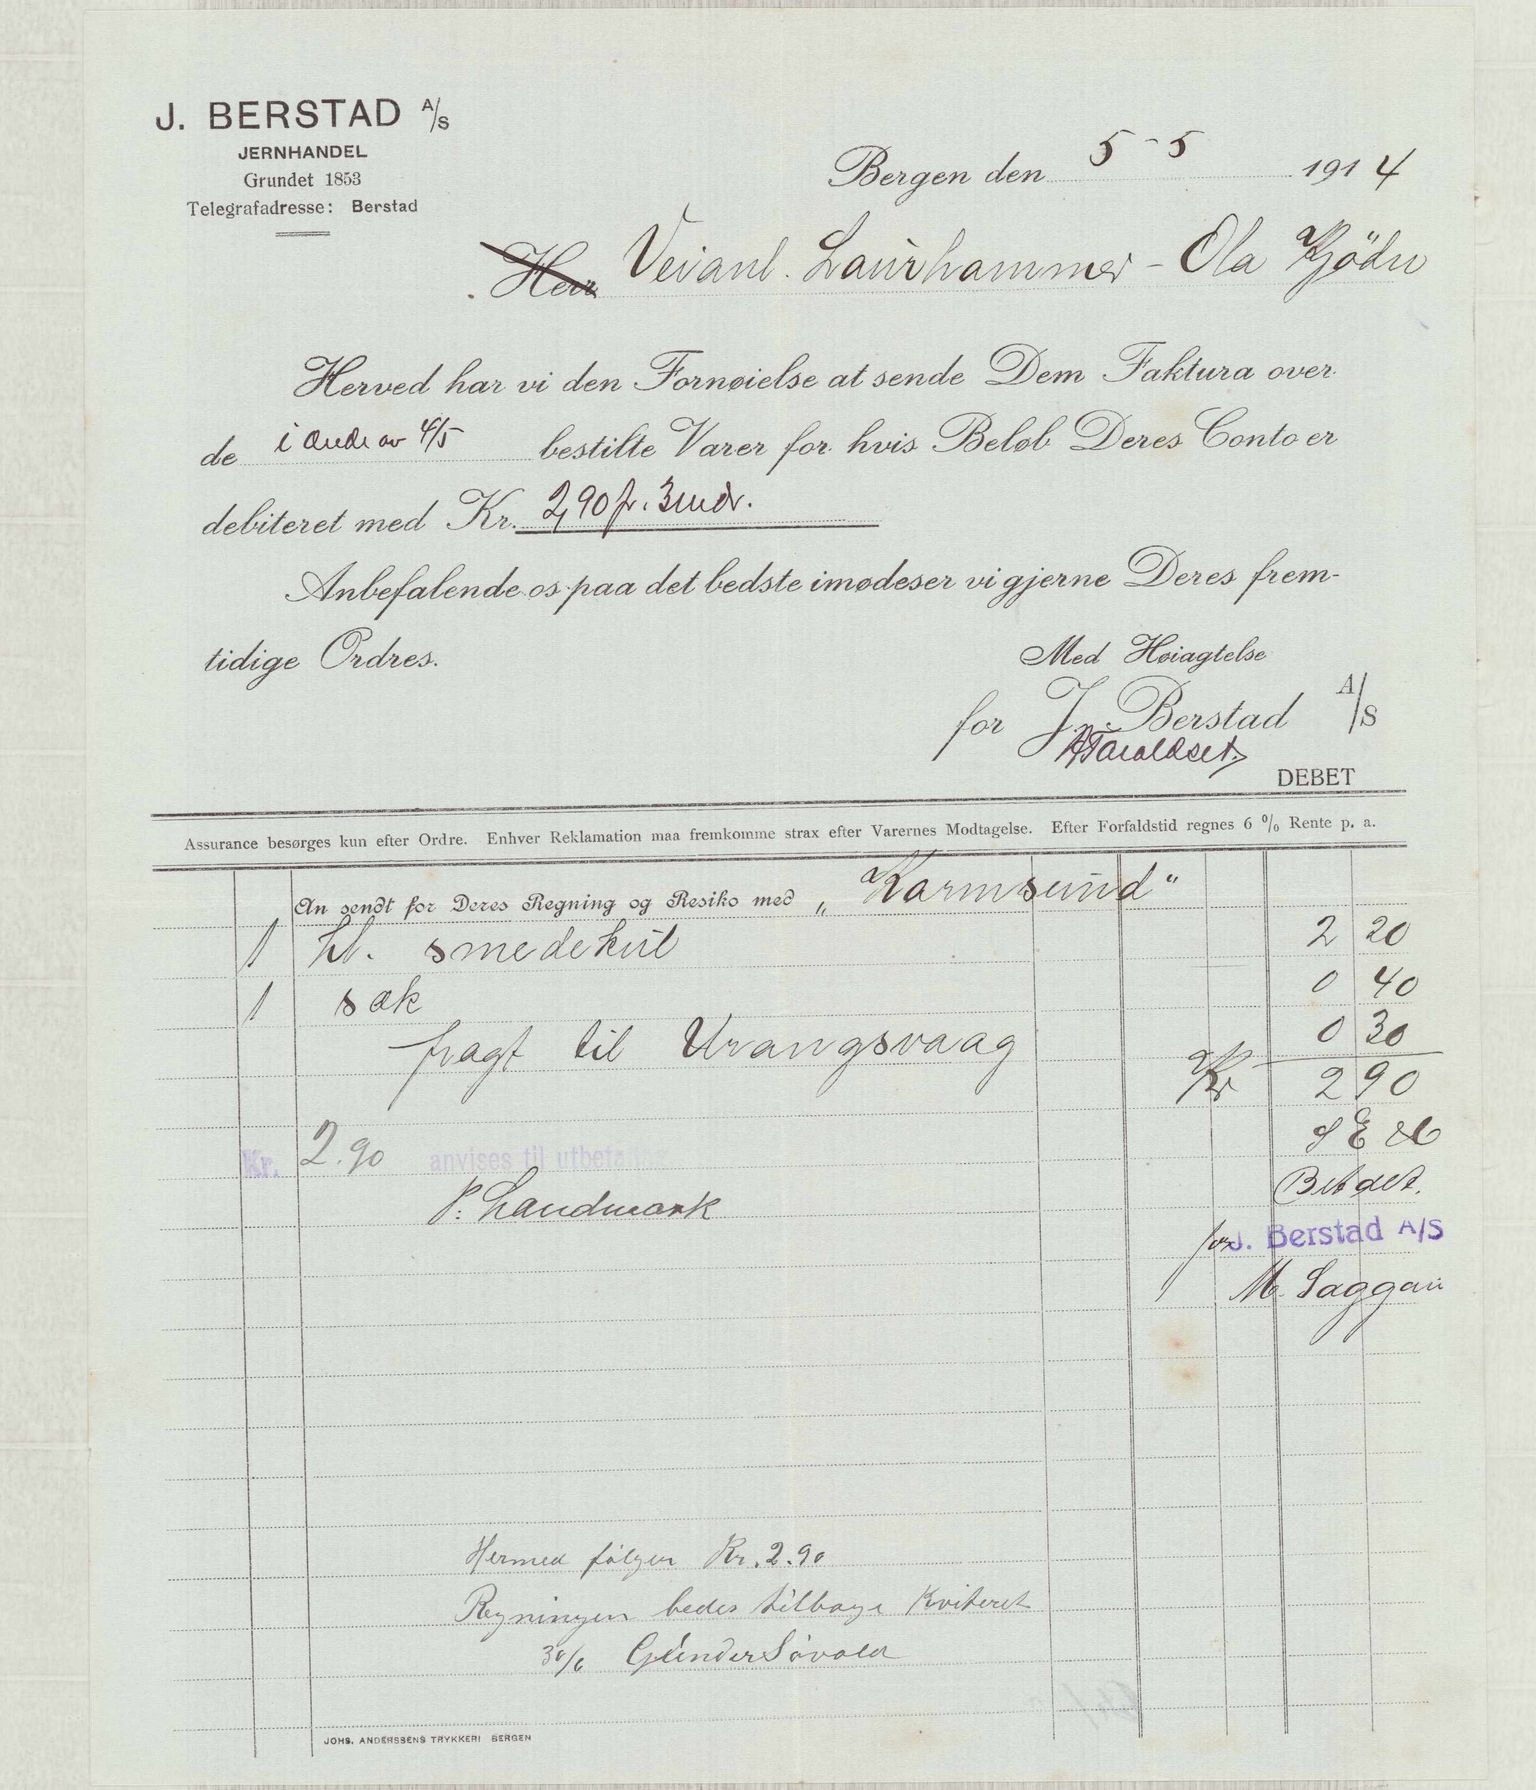 J. BERSTAD A/S
JERNHANDEL
Grundet 1853
Telegrafadresse: Berstad
Bergen den 5-5 1914
Herr Veianl. Laurhammer - Ola Kjödn
Herved har vi den Fornøielse at sende Dem Faktura over
de i Ordre av 4/5 bestilte Varer for hvis Beløb Deres Conto er
debiteret med Kr. 2,90 pr. 3 mdr.
Anbefalende os paa det bedste imødeser vi gjerne Deres frem-
tidige Ordres.
Med Høiagtelse
for J. Berstad A/S
DEBET
Assurance besørges kun efter Ordre. Enhver Reklamation maa fremkomme strax efter Varernes Modtagelse. Efter Forfaldstid regnes 6 % Rente p. a.
An sendt for Deres Regning og Resiko med „Karmsund"
1 hl. smedekul 2 20
1 sæk 0 40
fragt til Urangsvaag 0 30
Kr 2 90
S E & O
Kr. 2.90 anvises til utbeta
P. Landmark
Betalt.
for J. Berstad A/S
M. Saggau
Hermed følger Kr. 2.90
Regningen bedes tilbage kviteret
30/6 Gunder Søvold
JOHS. ANDERSSENS TRYKKERI BERGEN